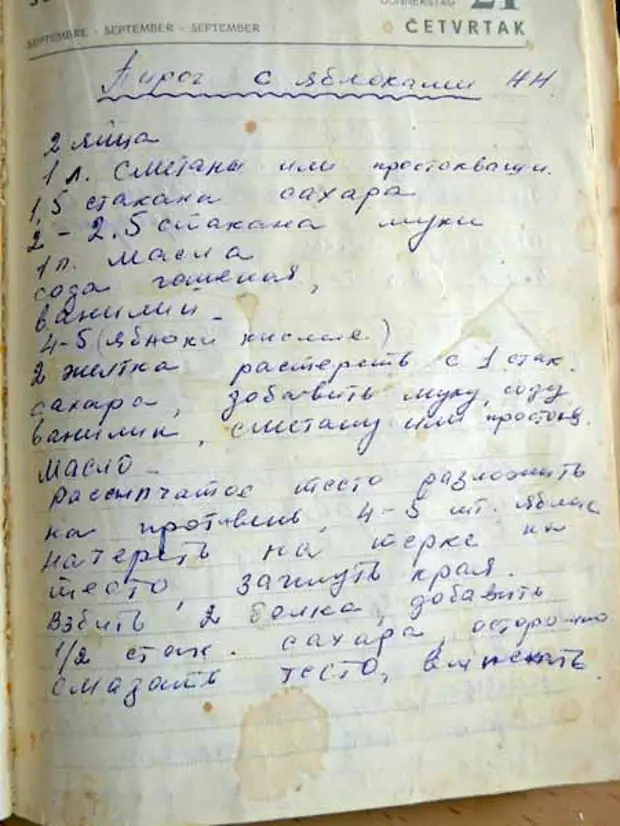 SEPTEMBRE - SEPTEMBER - SEPTEMBER
DONNERSTAG 21
ČETVRTAK
Пирог с яблоками НН
2 яйца
1 л. сметаны или простокваши.
1,5 стакана сахара
2 - 2.5 стакана муки
1 п. масла
сода гашеная,
ванилин -
4-5 (яблоки кислые.)
2 желтка растереть с 1 стак.
сахара, добавить муку, соду
ванилин, сметану или простокв.
масло -
Рассыпчатое тесто разложить
на противень, 4-5 шт. яблок
натереть на терке на
тесто, загнуть края.
Взбить, 2 белка, добавить
1/2 стак. сахара, осторожно
смазать тесто, выпекать.